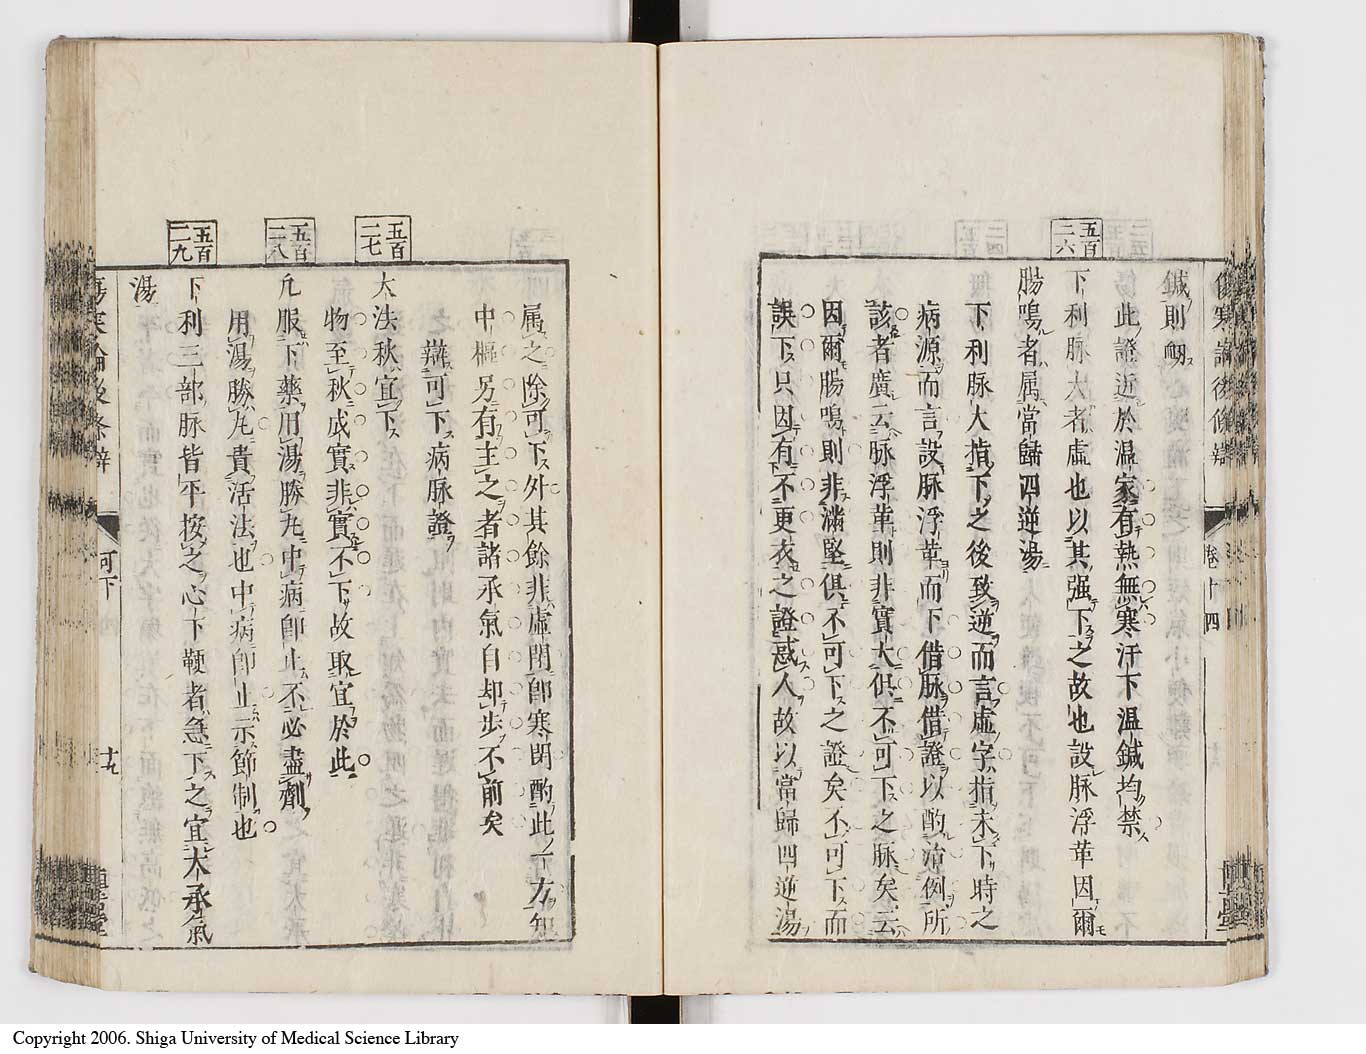 傷寒論後條辨
卷十四
鍼則衂
此證近於温家有熱無寒汗下温鍼均禁
五百二六
下利脉大者虛也以其强下之故也設脉浮革因爾
腸鳴者属當歸四逆湯
下利脉大指下之後致逆而言虛字指未下時之
病源而言設脉浮革而下借脉借證以酌治例所
該者廣云脉浮革則非實大俱不可下之脉矣云
因爾腸鳴則非滿堅俱不可下之證矣不可下而
誤下只因有不更衣之證惑人故以當歸四逆湯
属之除可下外其餘非虛閉卽寒閉酌此一方知
中樞另有主之者諸承氣自却步不前矣
辯可下病脉證
五百二七
大法秋宜下
物至秋成實非實不下故取宜於此
五百二八
凢服下藥用湯勝丸中病卽止不必盡劑
用湯勝丸責活法也中病卽止示節制也
五百二九
下利三部脉皆平按之心下鞕者急下之宜大承氣
湯
傷寒論後條辨
可下
十九
Copyright 2006. Shiga University of Medical Science Library